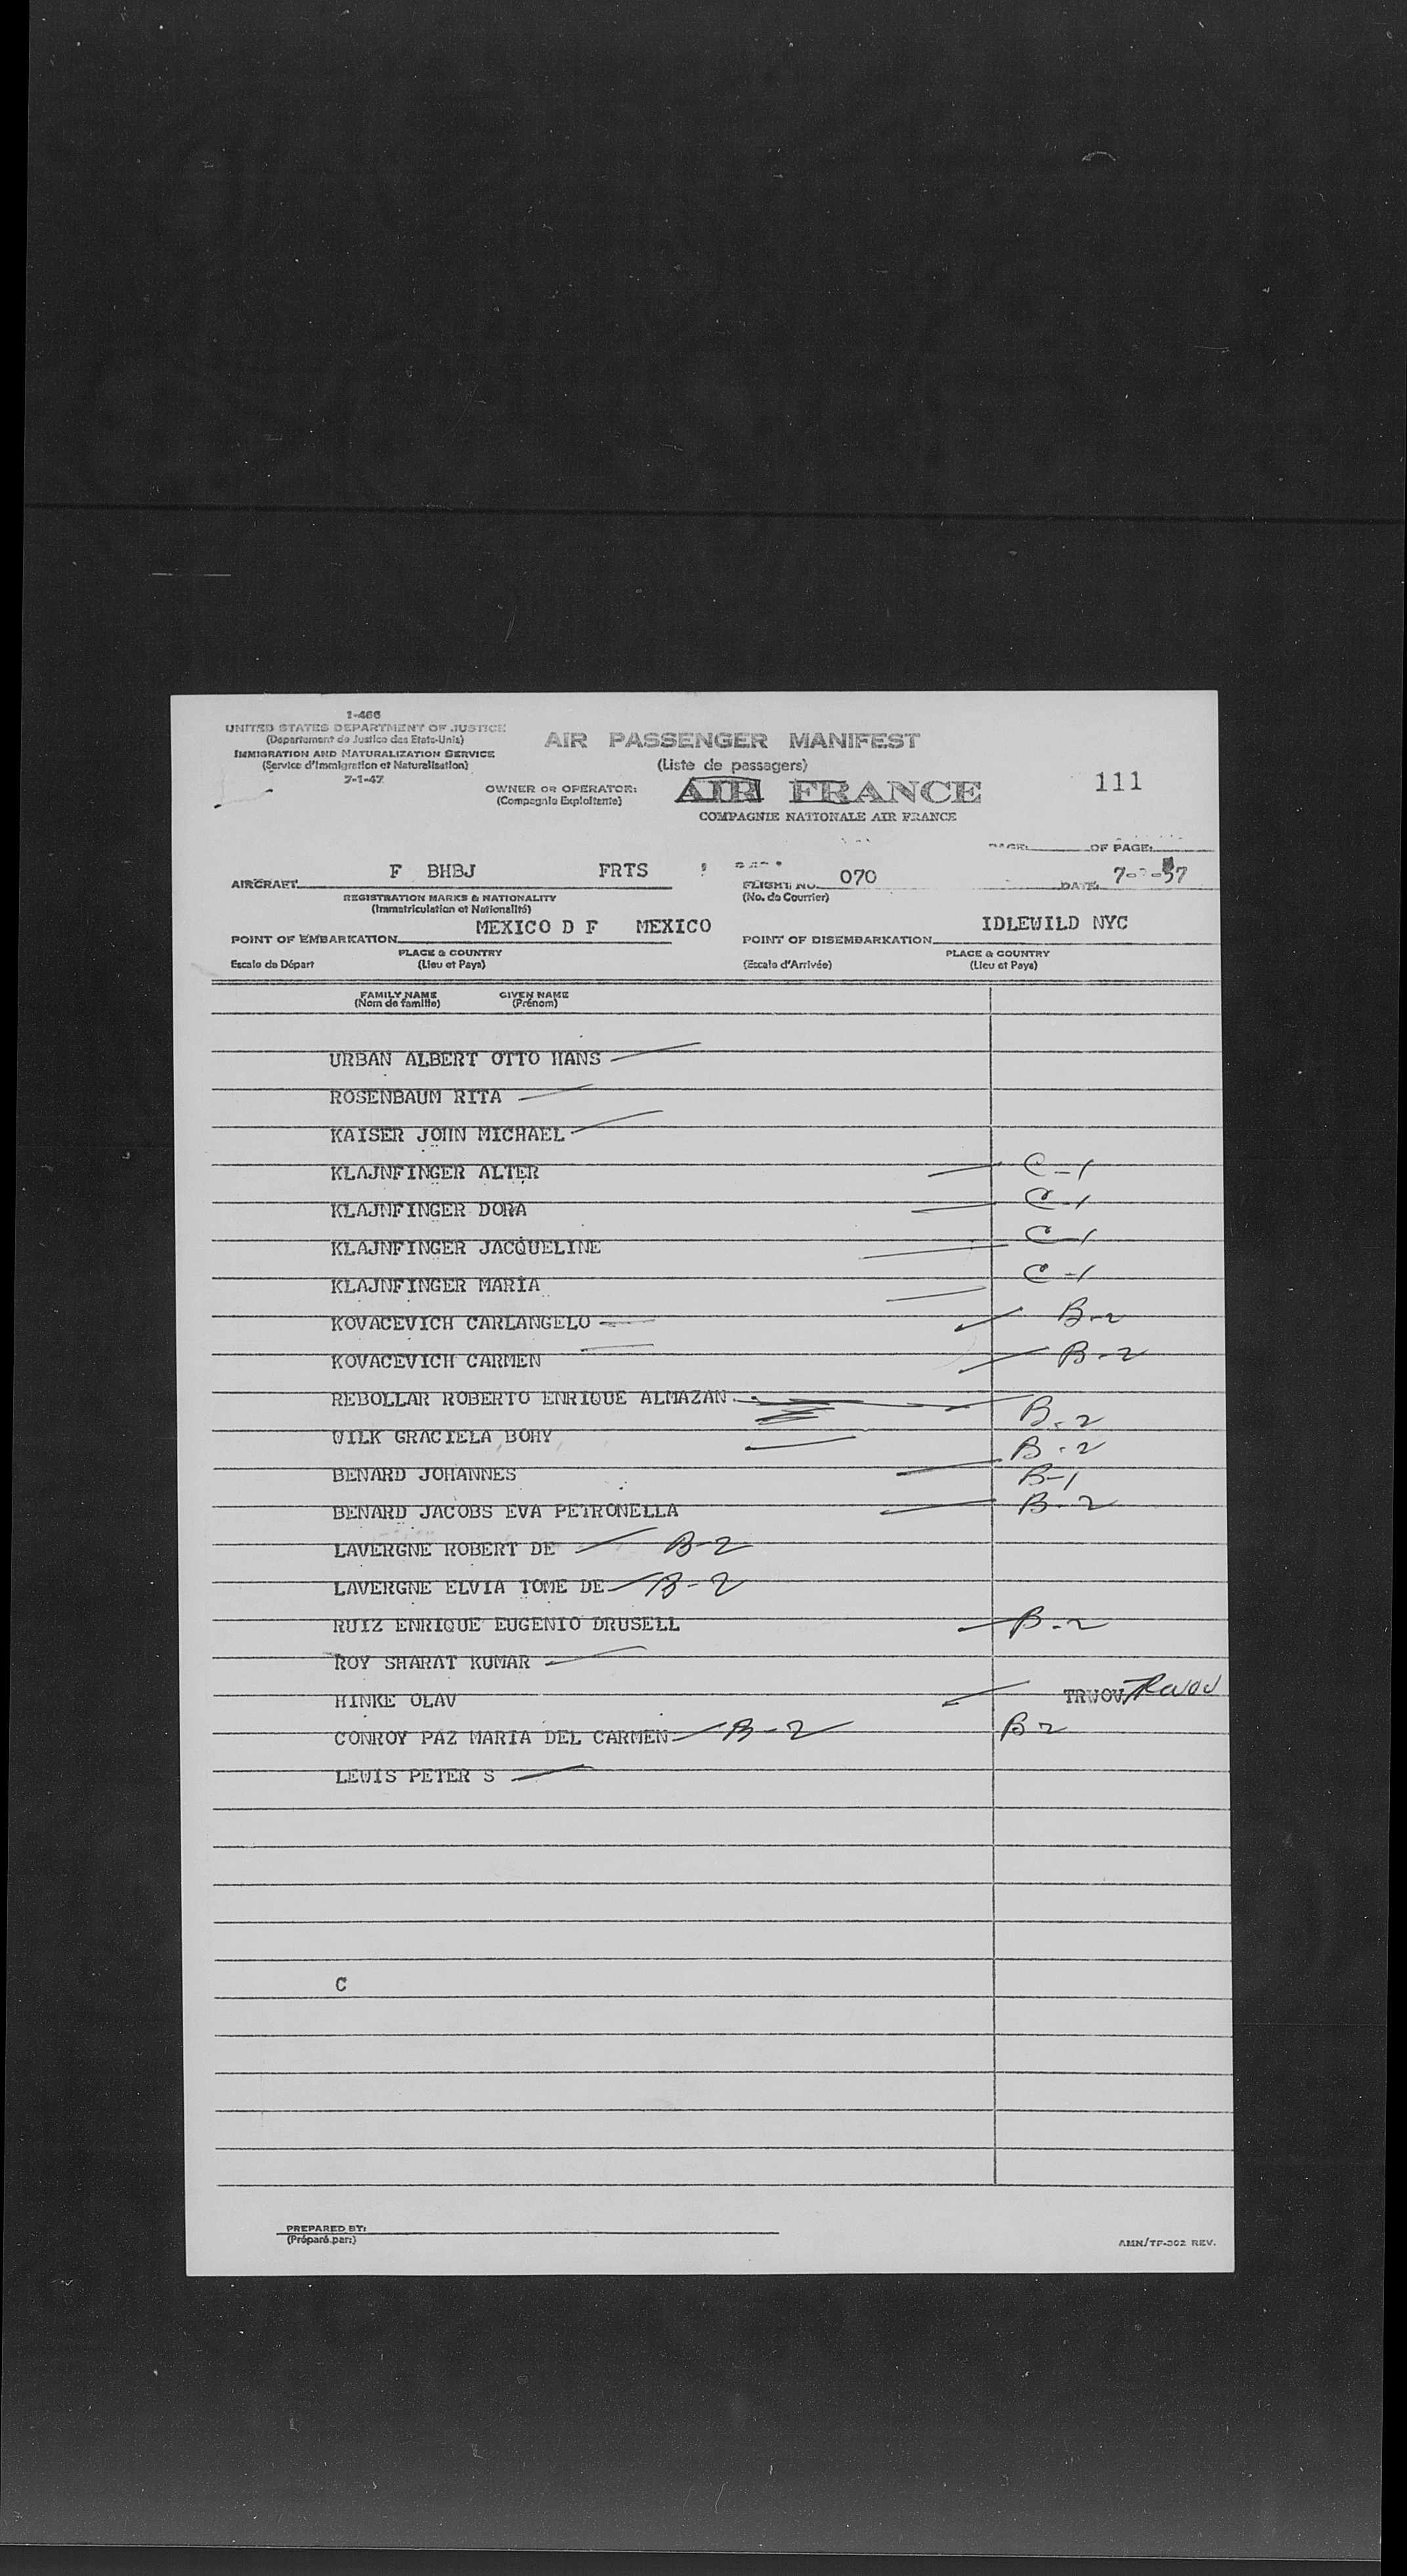 1-466
UNITED STATES DEPARTMENT OF JUSTICE
(Departement de Justice des Etats-Unis)
IMMIGRATION AND NATURALIZATION SERVICE
(Service d'Immigration et Naturalisation)
7-1-47
AIR PASSENGER MANIFEST
(Liste de passagers)
OWNER OR OPERATOR: AIR FRANCE
(Compagnie Exploitante)
COMPAGNIE NATIONALE AIR FRANCE
111
PAGE: OF PAGE:
AIRCRAFT F BHBJ FRTS
REGISTRATION MARKS & NATIONALITY
(Immatriculation et Nationalité)
FLIGHT NO. 070
(No. de Courrier)
DATE: 7- -57
POINT OF EMBARKATION MEXICO D F MEXICO
Escale de Départ
PLACE & COUNTRY
(Lieu et Pays)
POINT OF DISEMBARKATION IDLEWILD NYC
(Escale d'Arrivée)
PLACE & COUNTRY
(Lieu et Pays)
FAMILY NAME GIVEN NAME
(Nom de famille) (Prénom)
URBAN ALBERT OTTO HANS
ROSENBAUM RITA
KAISER JOHN MICHAEL
KLAJNFINGER ALTER C-1
KLAJNFINGER DORA C-1
KLAJNFINGER JACQUELINE C-1
KLAJNFINGER MARIA C-1
KOVACEVICH CARLANGELO B-2
KOVACEVICH CARMEN B-2
REBOLLAR ROBERTO ENRIQUE ALMAZAN B-2
WILK GRACIELA BOHY B-2
BENARD JOHANNES B-1
BENARD JACOBS EVA PETRONELLA B-2
LAVERGNE ROBERT DE B-2
LAVERGNE ELVIA TOME DE B-2
RUIZ ENRIQUE EUGENIO DRUSELL B-2
ROY SHARAT KUMAR
HINKE OLAV TRWOV
CONROY PAZ MARIA DEL CARMEN B-2 B2
LEWIS PETER S
C
PREPARED BY:
(Préparé par:)
AMN/TF-302 REV.